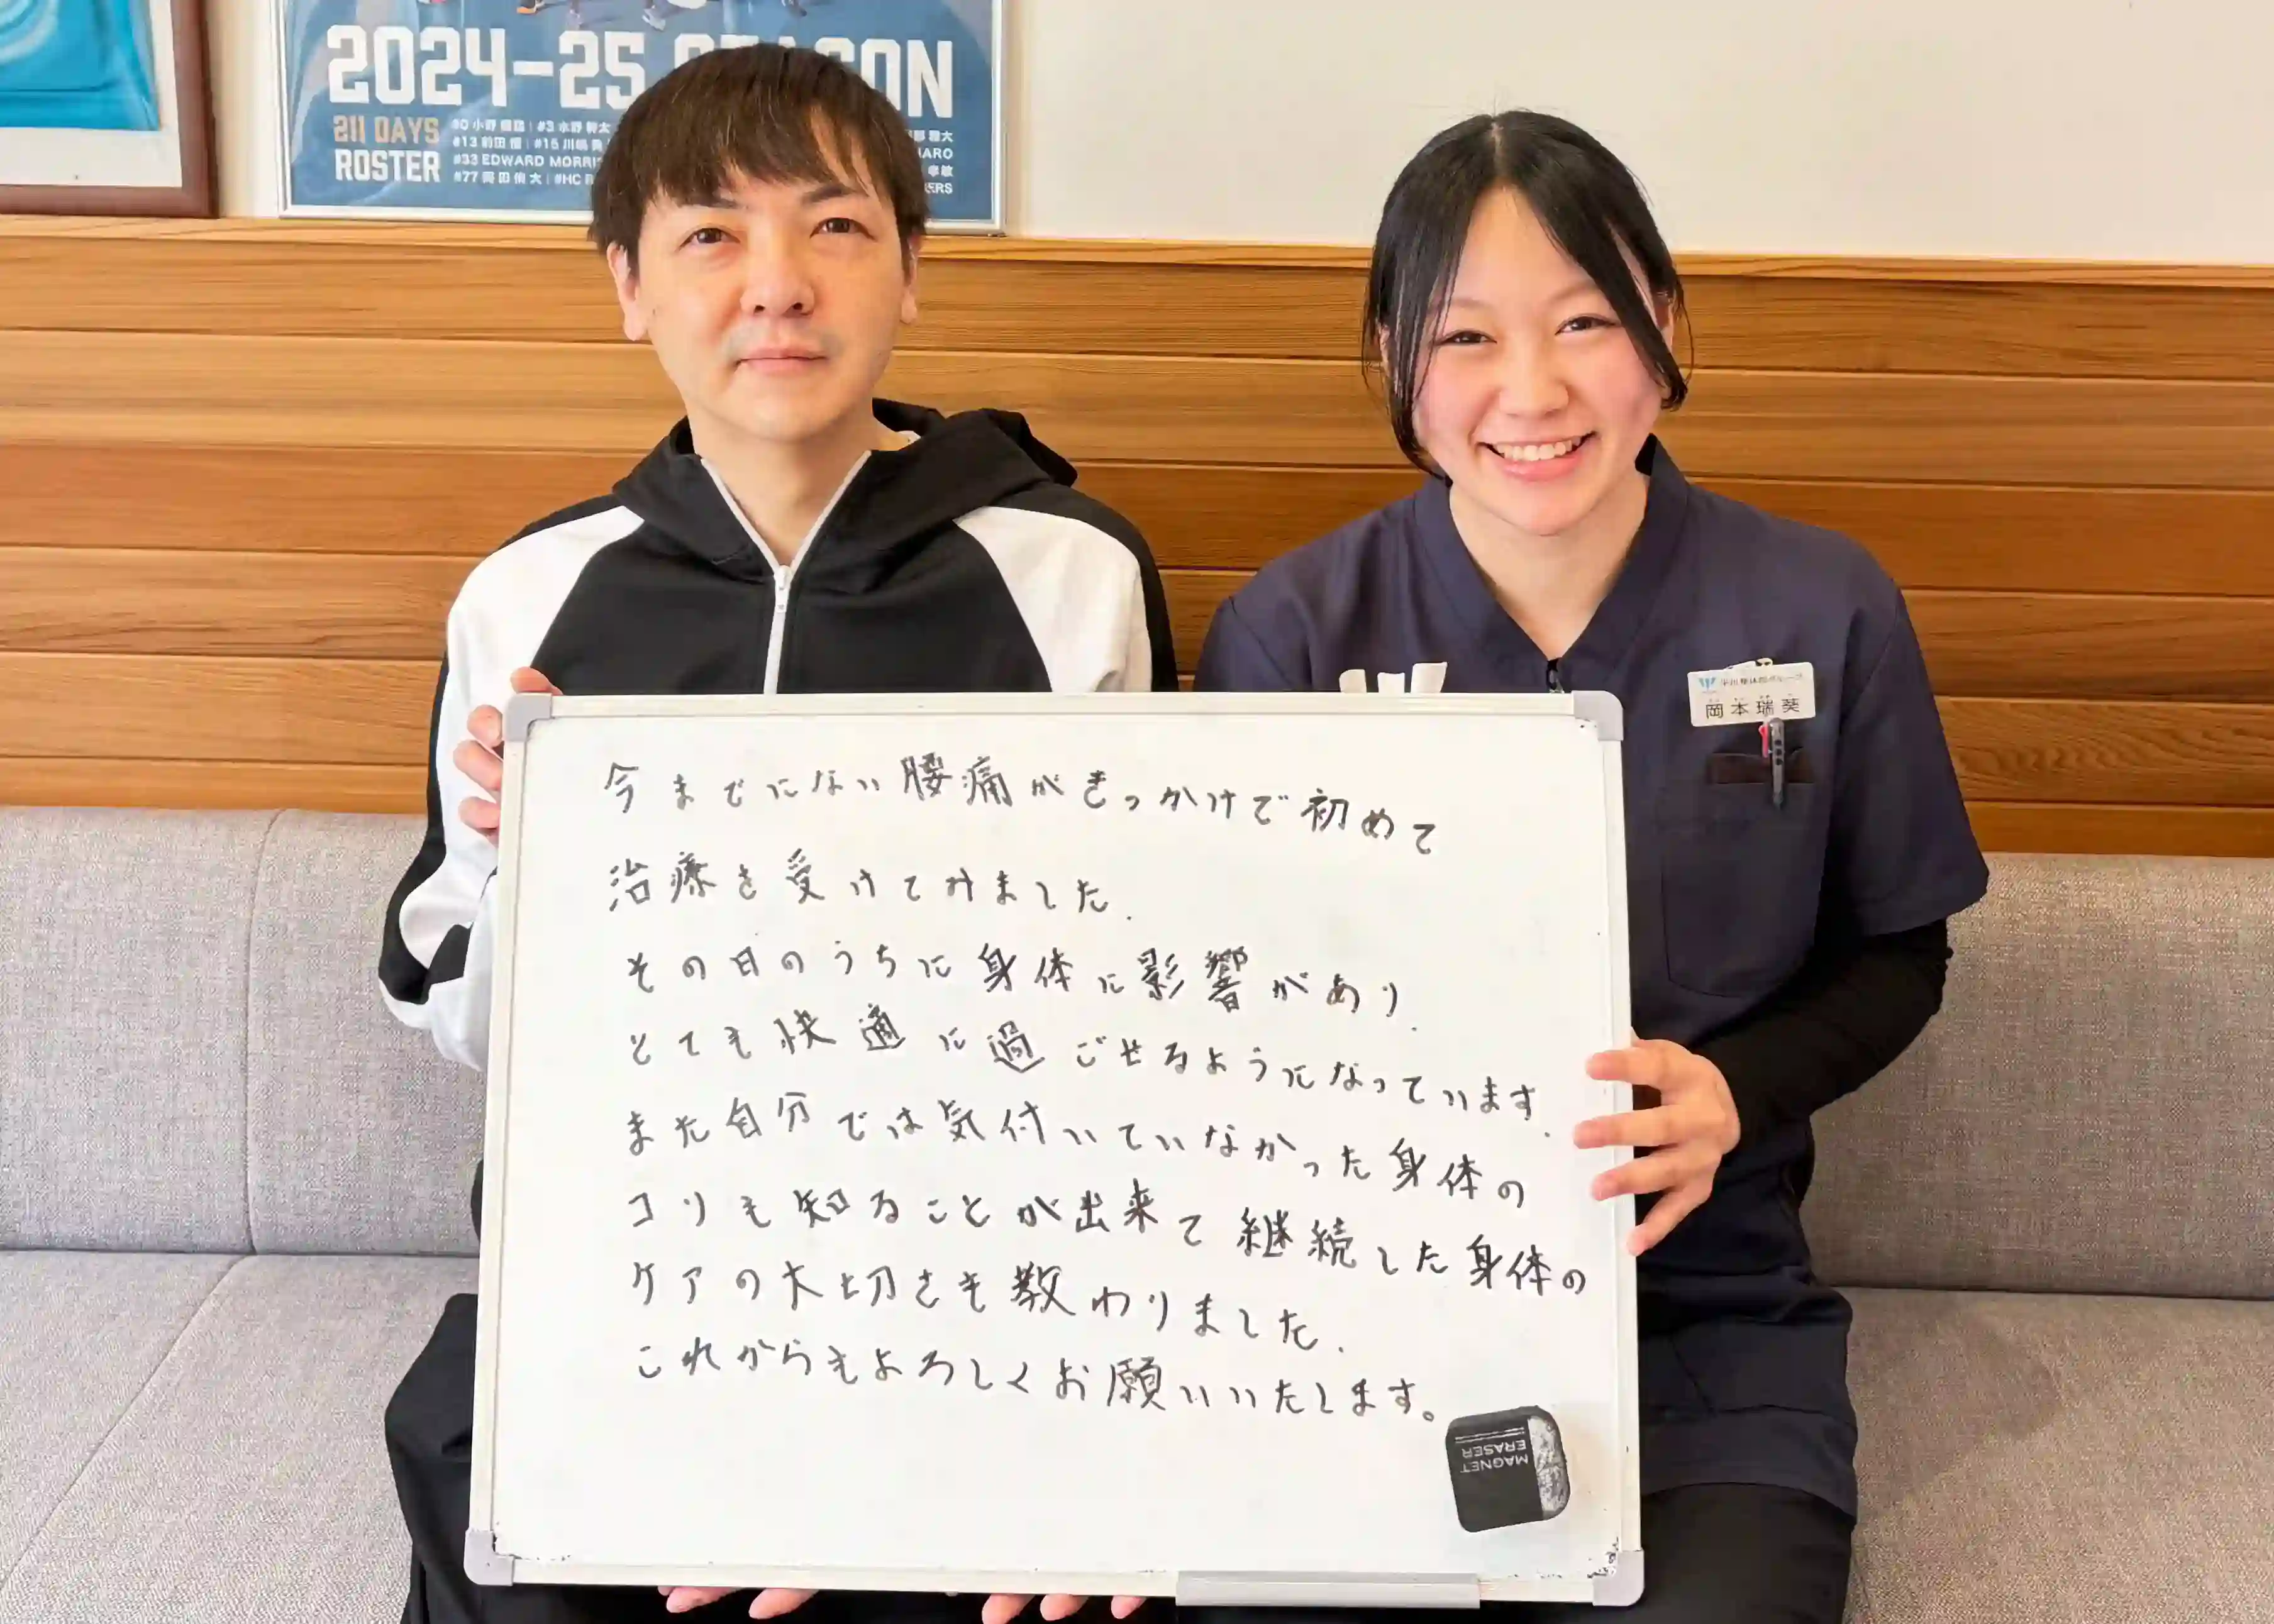 2024-25 SEASON
211 DAYS
ROSTER
#13 前田 #15 川嶋
#33 EDWARD MORRI
#77 岡田 侑大 #HC
岡本瑞葵
今までにない腰痛がきっかけで初めて
治療を受けてみました.
その日のうちに身体に影響があり.
とても快適に過ごせるようになっています.
また自分では気付いていなかった身体の
コリも知ることが出来て継続した身体の
ケアの大切さも教わりました.
これからもよろしくお願いいたします。
MAGNET
ERASER